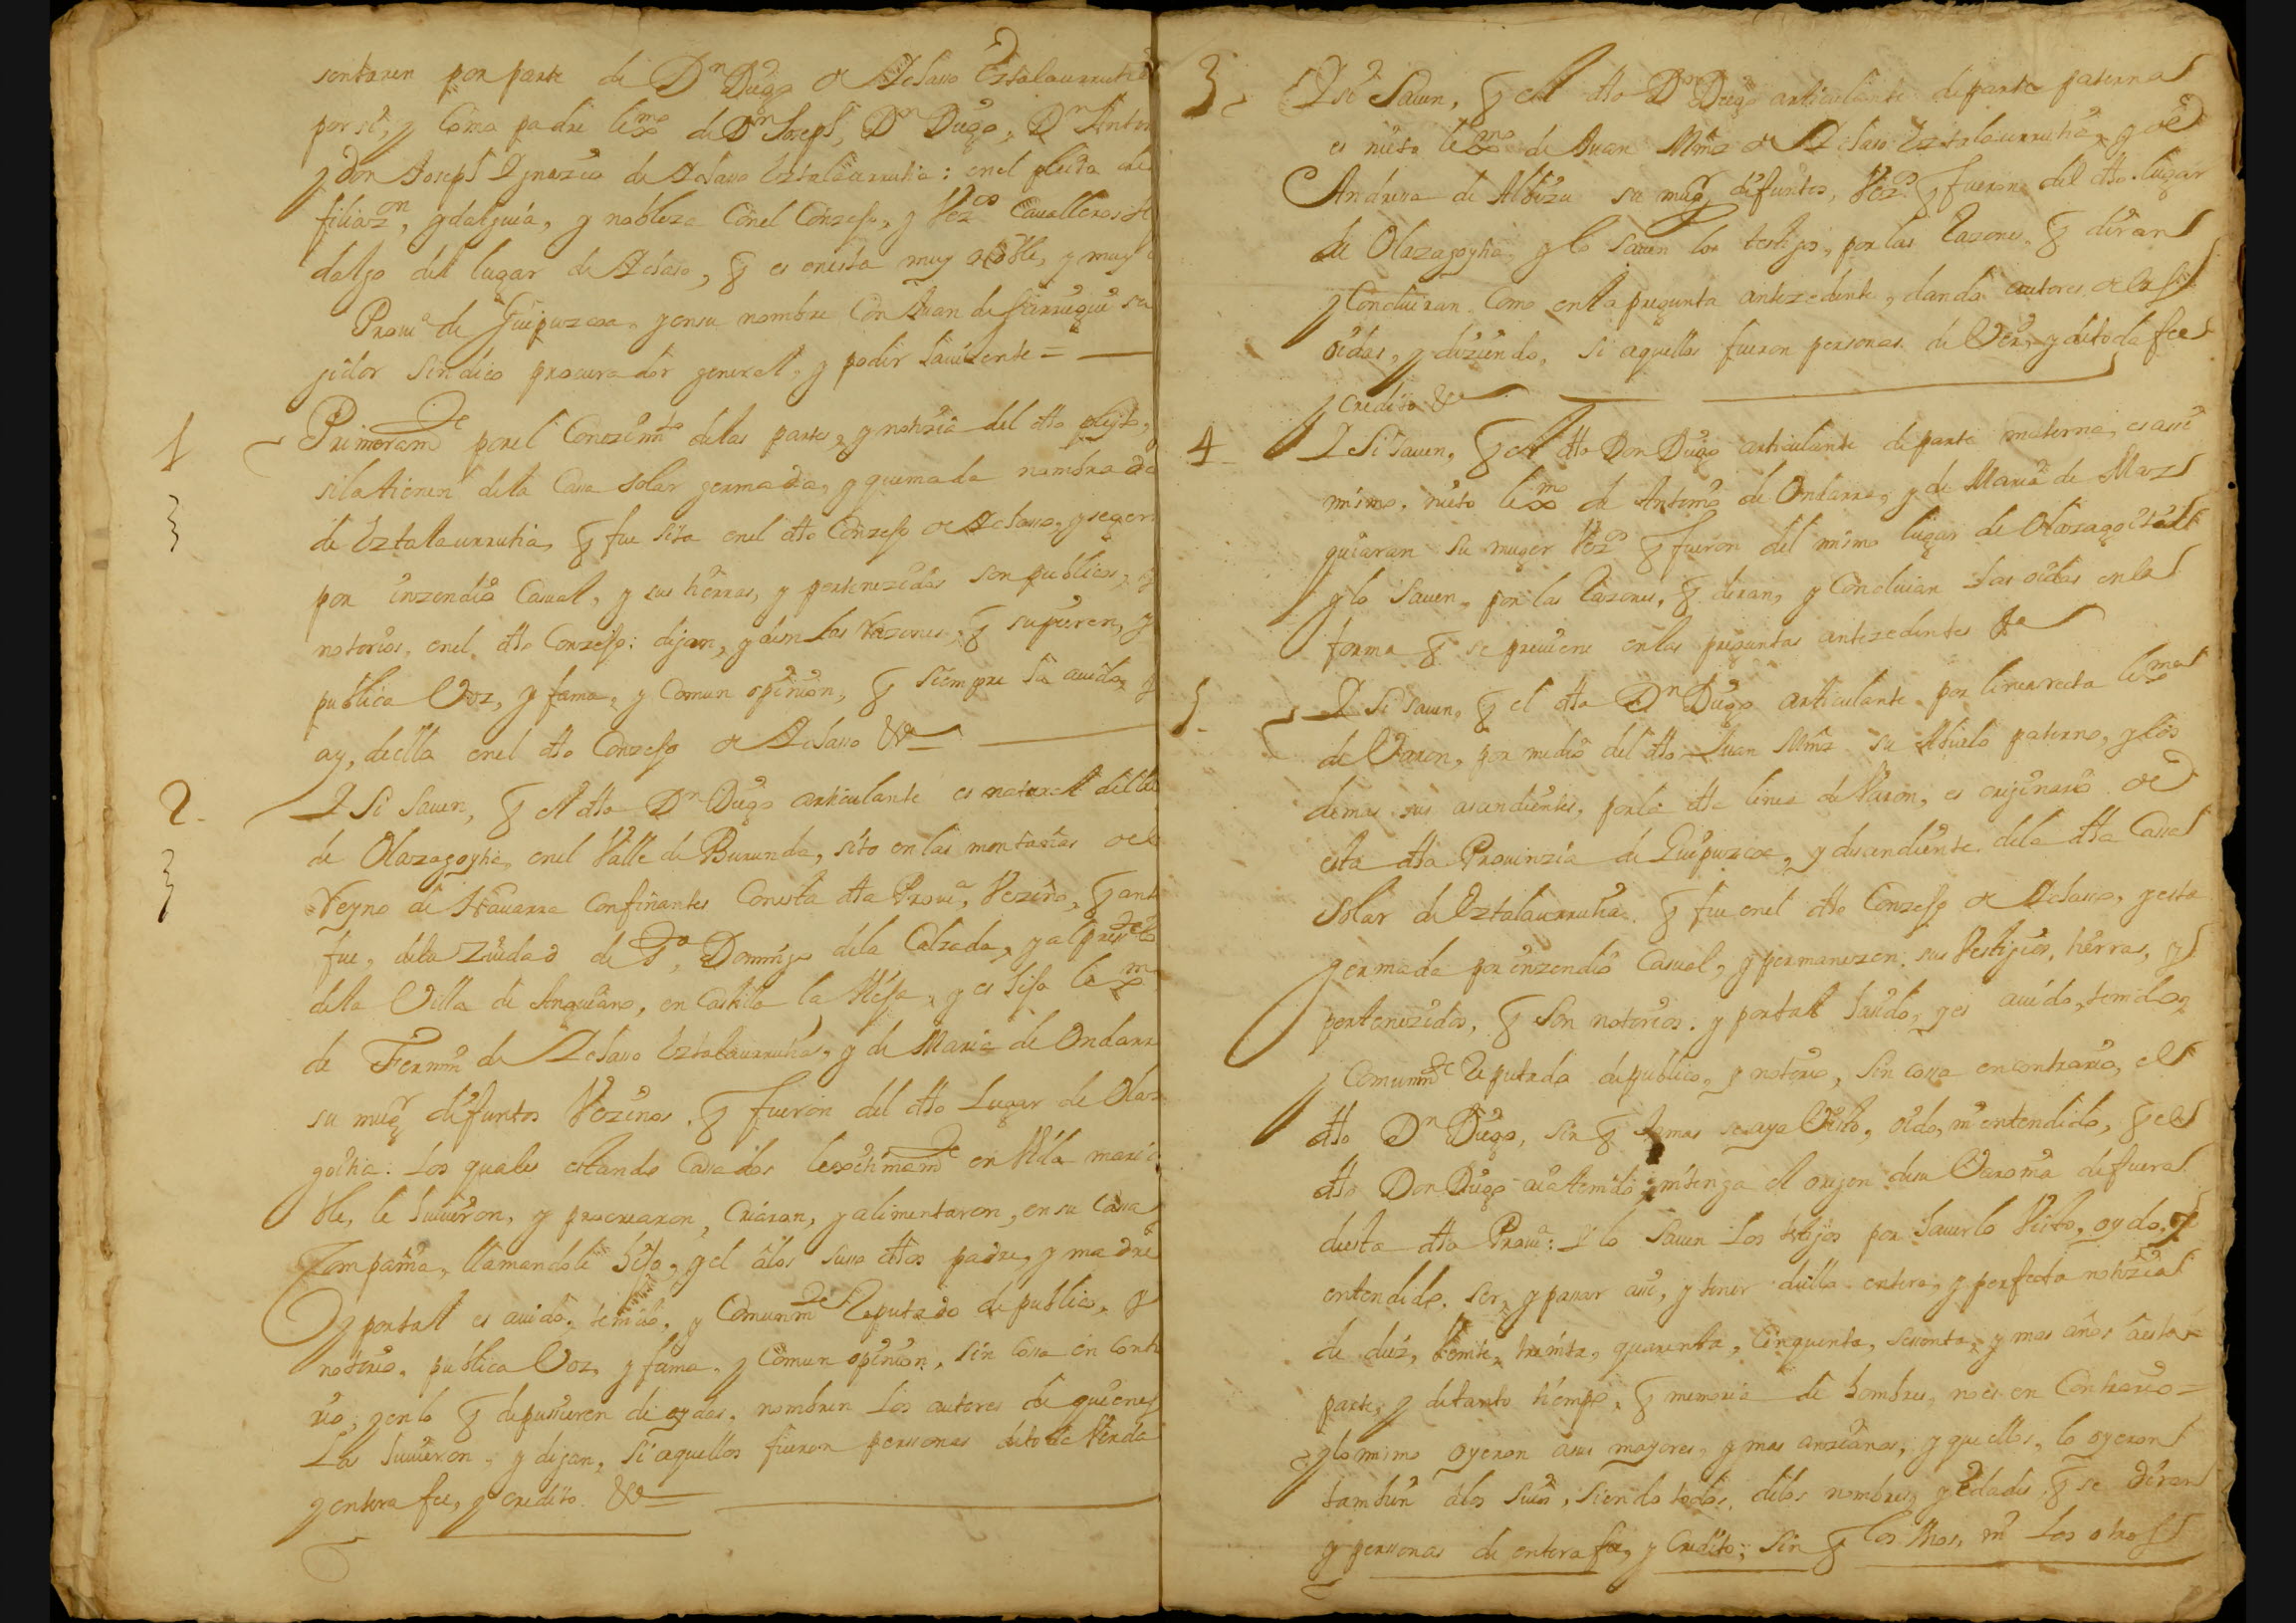 sentaren por parte de Dn Diego de Achaso Vztalaurrutia
por si, y como padre lexmo de Dn Joseph, Dn Diego, Dn Anton
y Don Joseph Ygnazio de Achaso Vztalaurrutia: en el pleito de
filiazon, ydalguia, y nobleza con el Conzejo, y Vezos Cavalleros hi
dalgo del lugar de Achaso, q es en esta muy noble, y muy
Prova de Guipuzcoa, y en su nombre con Juan de su
jidor sindico procurador general, y poder haviente =
1 Primeramte por el conozimto de las partes, y notizia del dho pleyto,
si la tienen de la Casa solar yermada, y quemada nombrada
de Vztalaurrutia, q fue sita en el dho Conzejo de Achaso, y se yer
por inzendio casual, y sus tierras, y pertenezidos son publicos, y
notorios, en el dho Conzejo: digan, y den las razones, q supieren, y
publica voz, y fama, y comun opinion, q siempre ha avido, y
ay, de ella en el dho Conzejo de Achaso &a
2 Y si saven, q el dho Dn Diego articulante es natural del lu
de Olazagoytia, en el Valle de Burunda, sito en las montañas de
Reyno de Navarra confinantes con esta dha Prova, Vezino, q ant
fue, de la Ziudad de Sto Domingo de la Calzada, y al preste lo
de la Villa de Anguiano, en Castilla la Vieja, y es hijo lexmo
de Fermin de Achaso Vztalaurrutia, y de Maria de Ondarr
su mugr difuntos Vezinos q fueron del dho Lugar de Olaz
goitia: Los quales estando casados lexitimamte en Vida marid
ble, le huvieron, y procrearon, criaron, y alimentaron, en su casa
Compañia, llamandole hijo, y el a los suso dhos padre, y madre
y por tal es avido, tenido, y comunmte Reputado de publico, y
notorio, publica Voz, y fama, y comun opinion, sin cosa en contr
rio, y en lo q depusieren de oydas, nombren los autores de quienes
Las huvieron, y digan, si aquellos fueron personas de toda Verda
y entera fee, y credito &a
3 Y si saven, q el dho Dn Diego articulante de parte paterna
es nieto lexmo de Juan Mrnz de Achaso Vztalaurrutia, y de
Andresa de Albizu su mugr difuntos, Vezos q fueron del dho lugar
de Olazagoytia, y lo saven los testigos, por las Razones, q diran
y concluiran como en la pregunta antezedente, dando autores de las
oidas, y diziendo, si aquellos fueron personas de Ver, y de toda fee
y credito &a
4 Y si saven, q el dho Don Diego articulante de parte materna, es assi
mismo, nieto lexmo de Antonio de Ondarra, y de Maria de Maz
quiaran su muger Vezos q fueron del mismo lugar de Olazagoitia
y lo saven, por las Razones, q diran, y concluian las oidas en la
forma q se previene en las preguntas antezedentes &a
5 Y si saven, q el dho Dn Diego articulante por linea recta lexma
de Varon, por medio del dho Juan Mrnz su Abuelo paterno, y los
demas sus asendientes, por la dha linea de Varon, es orijinario de
esta dha Provinzia de Guipuzcoa, y desendiente de la dha Cassa
solar de Vztalaurrutia, q fue en el dho Conzejo de Achaso, y esta
yermada por inzendio casual, y permanezen sus Vestijios, tierras, y
pertenezidos, q son notorios, y por tal ha sido, y es avido, tenido, y
y comunmte Reputado de publico, y notorio, sin cossa en contrario, el
dho Dn Diego, sin q jamas se aya Visto, oido, ni entendido, q el
dho Don Diego aia tenido, ni tenga el orijen de su Varonia de fuera
de esta dha Prova: Y lo saven los testijos por haverlo Visto, oydo, y
entendido, ser, y pasar assi, y tener de ello entera, y perfecta notizia
de diez, Veinte, treinta, quarenta, cinquenta, sesenta, y mas años a esta
parte, y de tanto tiempo, q memoria de hombres, no es en contrario =
y lo mismo oyeron a sus mayores, y mas anzianos, y que ellos, lo oyeron
tambien a los suios, siendo todos, de los nombres, y edades, q se diran
y personas de entera fee, y credito; sin q los Vnos, ni los otros